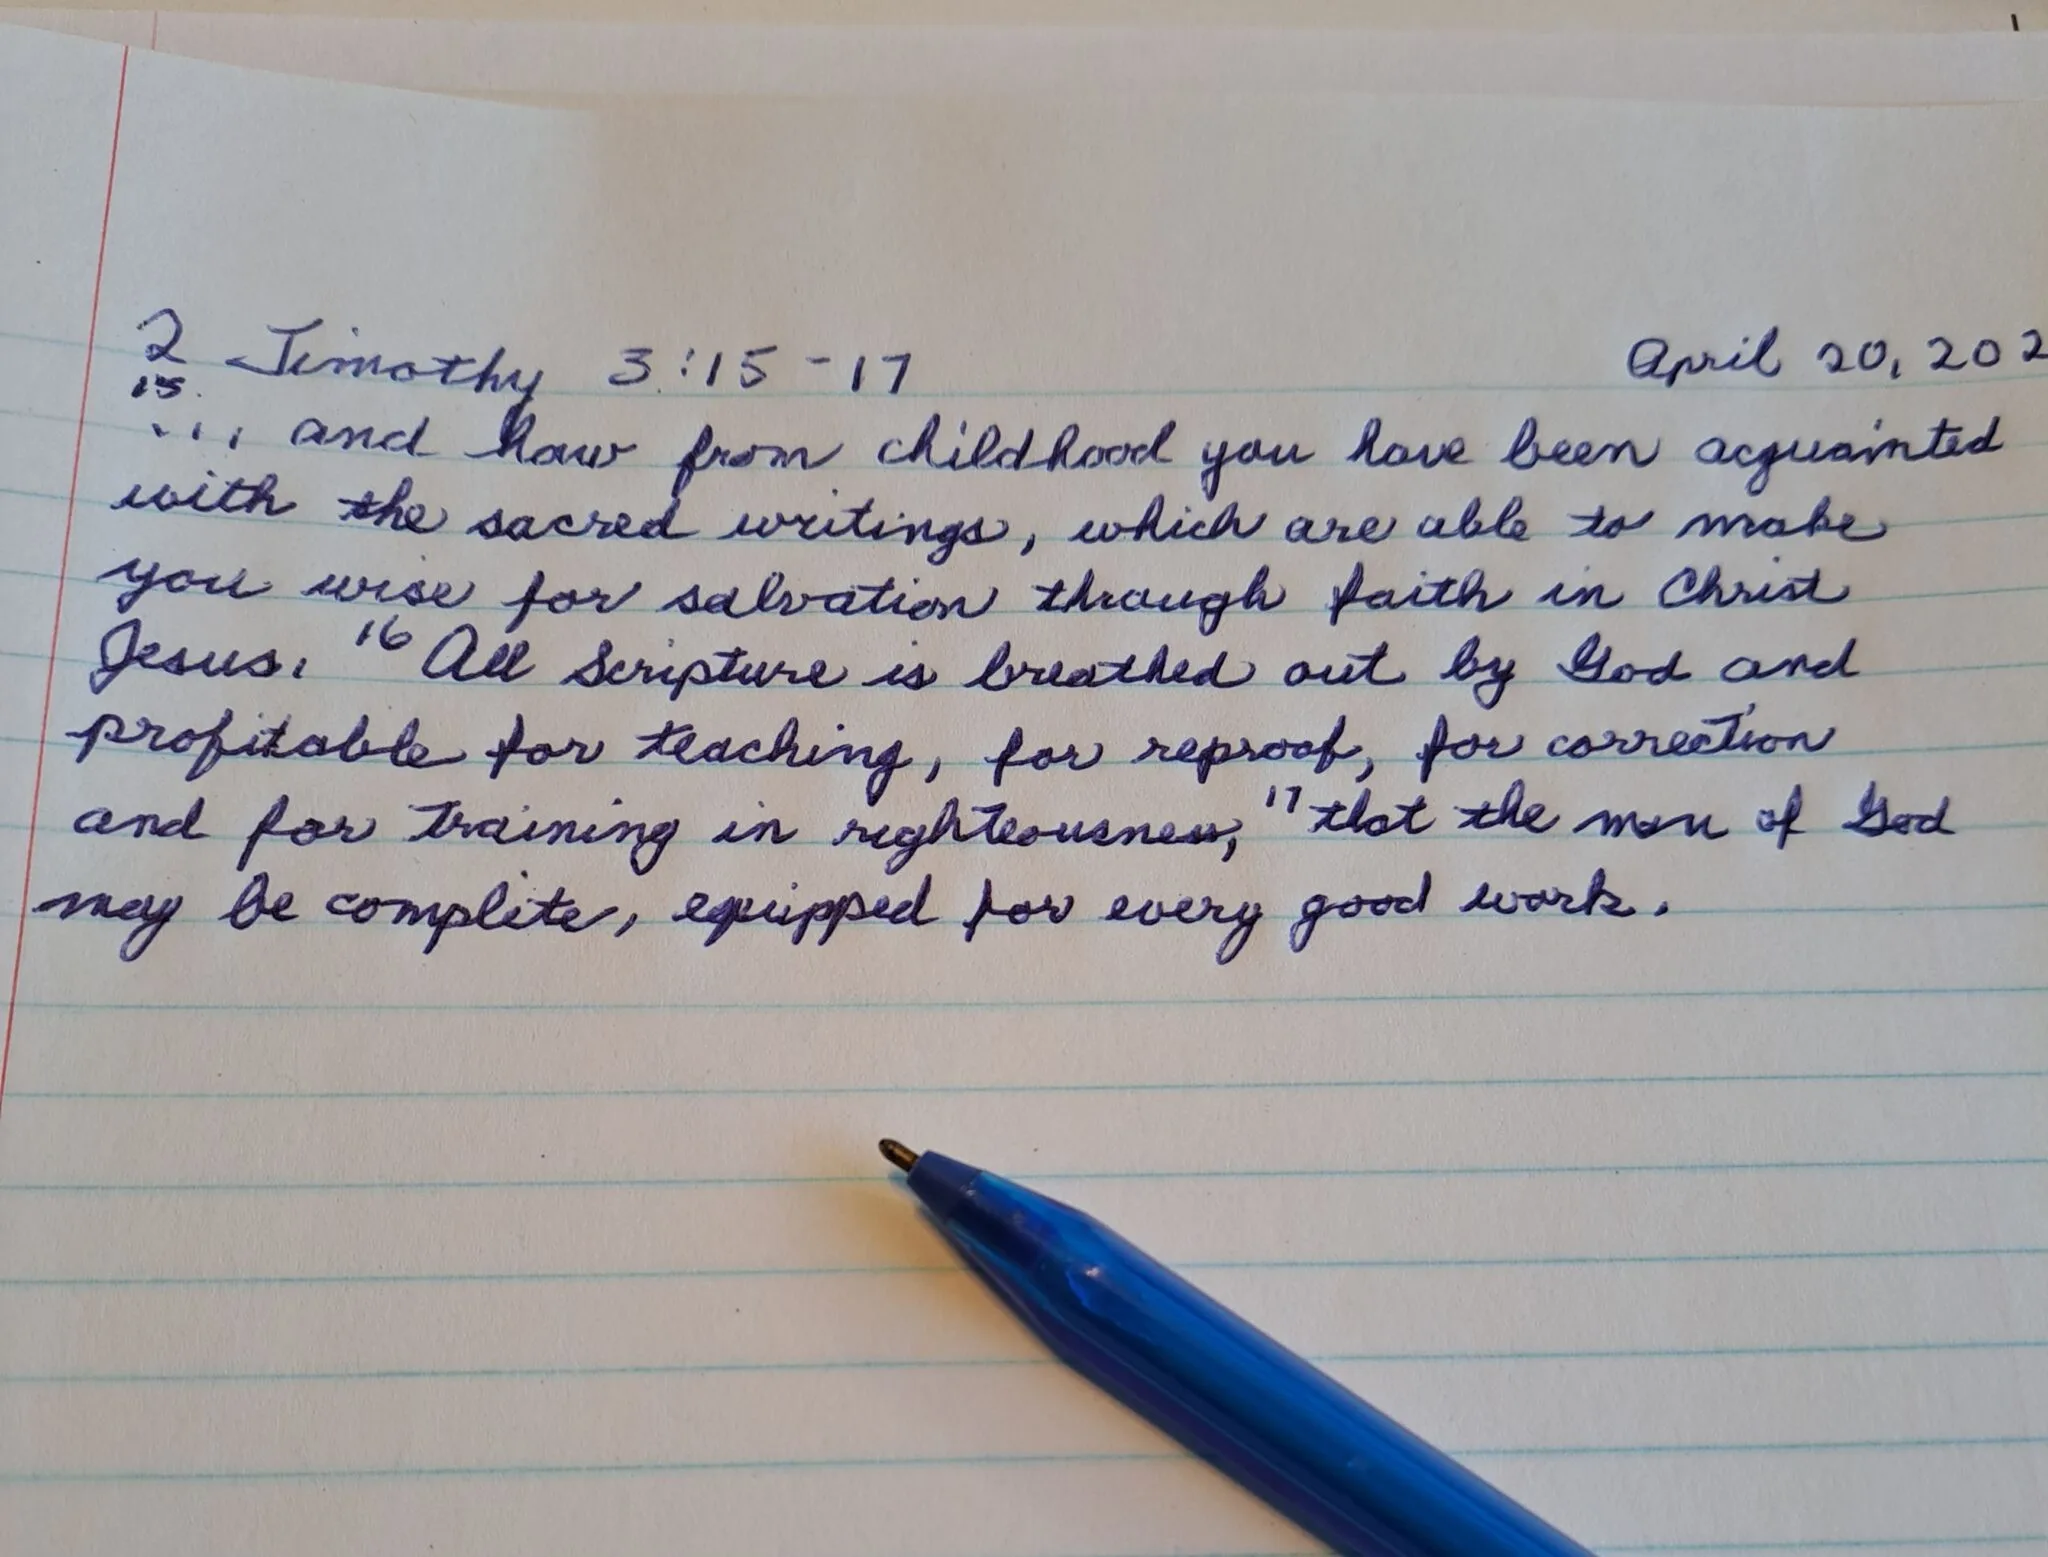 2 Timothy 3:15-17 April 20, 202
15.
... and how from childhood you have been acquainted
with the sacred writings, which are able to make
you wise for salvation through faith in Christ
Jesus. 16 All Scripture is breathed out by God and
profitable for teaching, for reproof, for correction
and for training in righteousness, 17 that the man of God
may be complete, equipped for every good work.